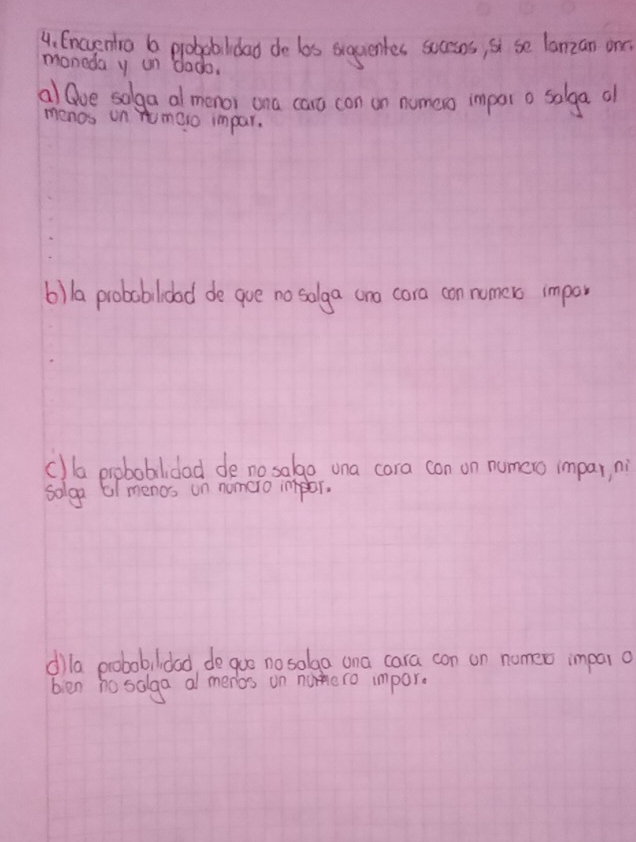 4. Encuentro la probabilidad de los siguientes sucesos, si se lanzan una
moneda y un dado.
a) Que salga al menos una cara con un numero impar o salga al
menos un numero impar.
b) la probabilidad de que no salga una cara con numero impar
c) la probabilidad de no salga una cara con un numero impar, ni
salga al menos un numero impar.
d) la probabilidad de que no salga una cara con un numero impar o
bien no salga al menos un numero impar.